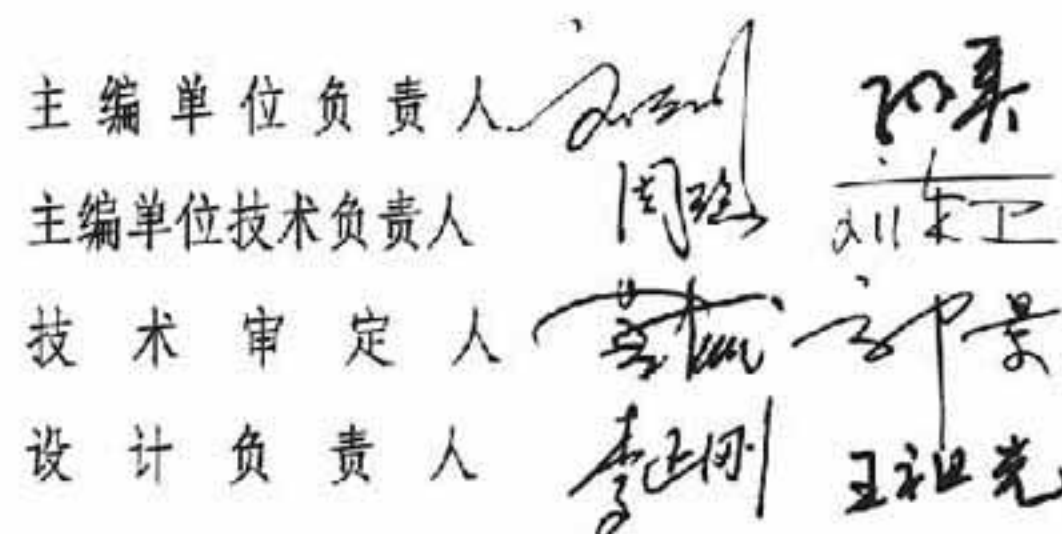 主编单位负责人
主编单位技术负责人 周 刘东卫
技术审定人 郭景
设计负责人 李正刚 王祖光